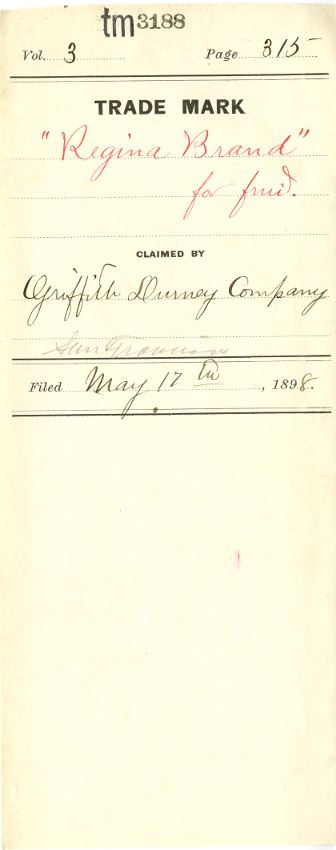 tm3188
Vol. 3 Page 315
TRADE MARK
"Regina Brand"
for fruit.
CLAIMED BY
Griffith Durney Company
San Francisco
Filed May 17th, 1898.